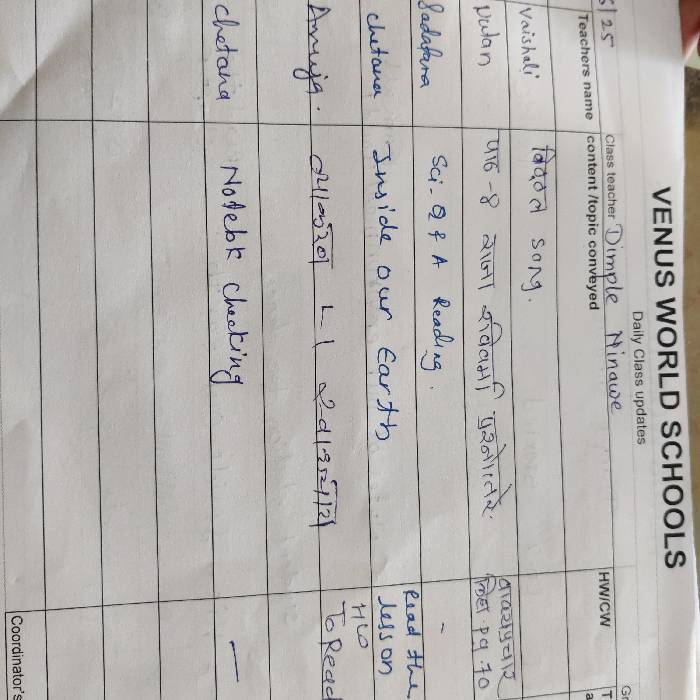 VENUS WORLD SCHOOLS
Daily Class updates
6/25 Class teacher Dimple Ninawe
Teachers name content /topic conveyed HW/CW
Vaishali विठ्ठल song.
पाठ -8 राजा रविवर्मा प्रश्नोत्तरे. pg 70
Sadafara Sci- Q & A Reading. -
chetana Inside our Earth Read the lesson
Anuja. व्याकरण H/W To Read
chetana Notebk checking —
Coordinator's